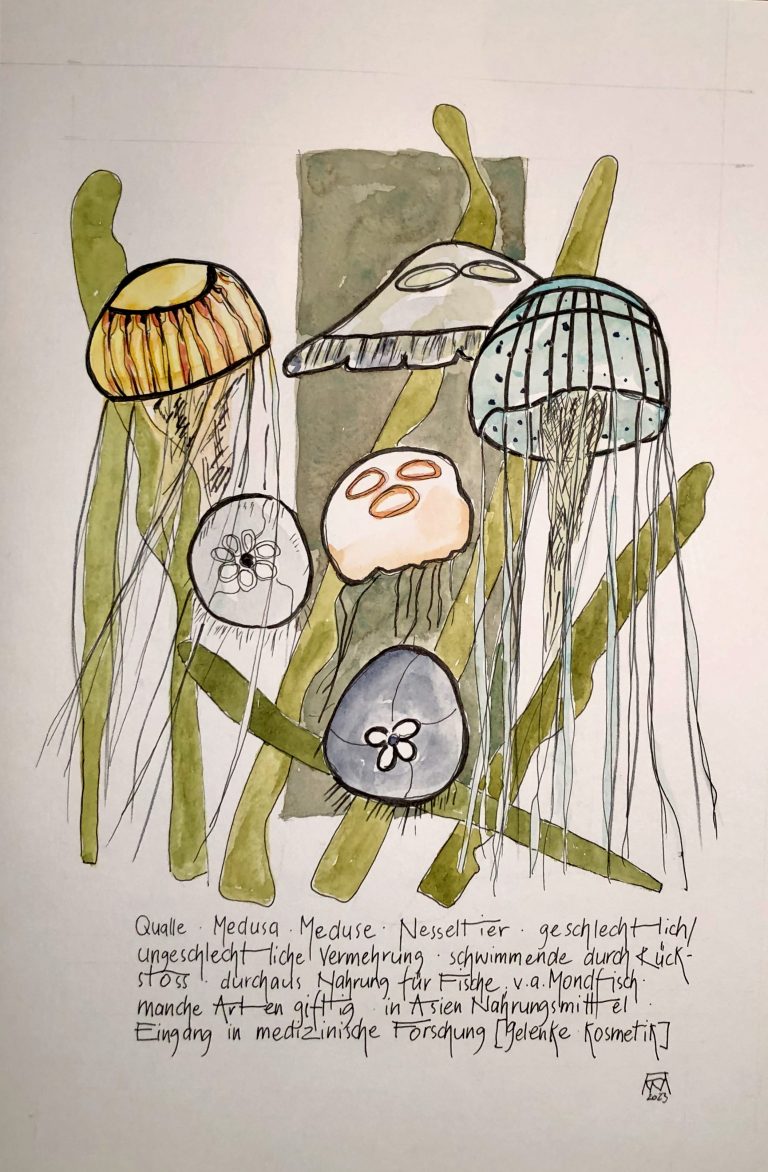 Qualle · Medusa · Meduse · Nesseltier · geschlechtlich/
ungeschlechtliche Vermehrung · schwimmende durch Rück-
stoss · durchaus Nahrung für Fische, v.a. Mondfisch ·
manche Arten giftig · in Asien Nahrungsmittel ·
Eingang in medizinische Forschung [Gelenke Kosmetik]
2023